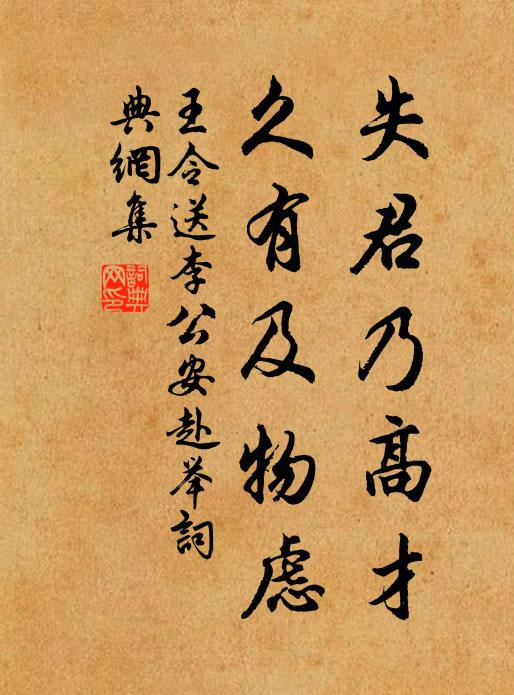 失君乃高才
久有及物慮
王令送李公安赴举詞
典網集
詞典
网印